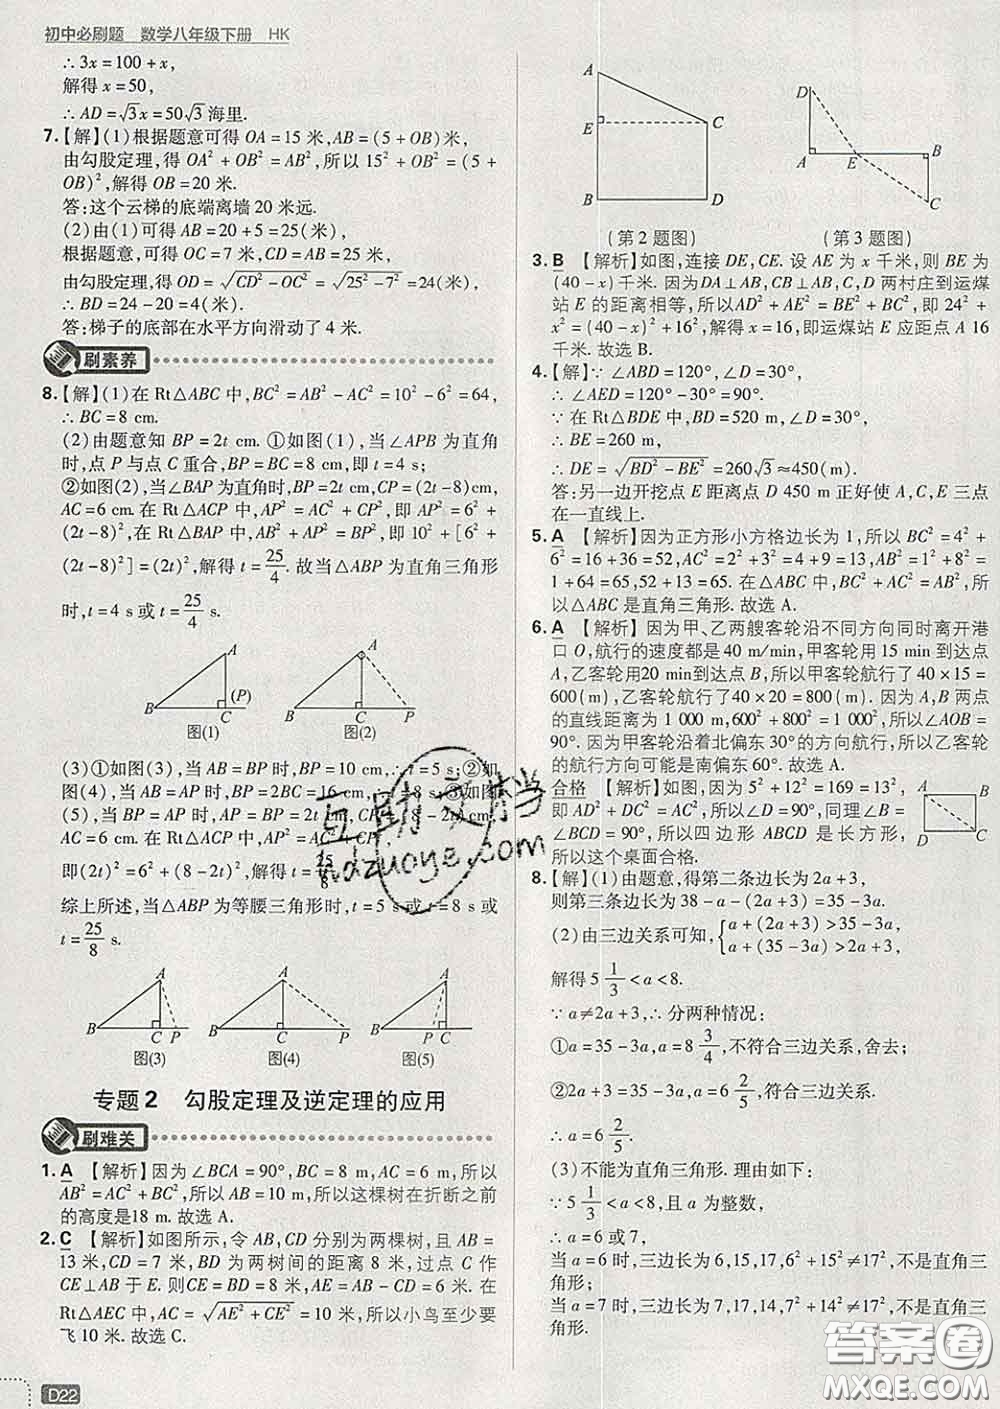 初中必刷题 数学八年级下册 HK
∴ 3x = 100 + x，
解得 x = 50，
∴ AD = √3x = 50√3 海里.
7.【解】(1)根据题意可得 OA = 15 米，AB = (5 + OB)米，
由勾股定理，得 OA² + OB² = AB²，所以 15² + OB² = (5 +
OB)²，解得 OB = 20 米.
答：这个云梯的底端离墙 20 米远.
(2)由(1)可得 AB = 20 + 5 = 25(米)，
根据题意，可得 OC = 7 米，CD = AB = 25(米)，
由勾股定理，得 OD = √(CD² − OC²) = √(25² − 7²) = 24(米)，
∴ BD = 24 − 20 = 4(米)，
答：梯子的底部在水平方向滑动了 4 米.
刷素养
8.【解】(1)在 Rt△ABC 中，BC² = AB² − AC² = 10² − 6² = 64，
∴ BC = 8 cm.
(2)由题意知 BP = 2t cm. ①如图(1)，当∠APB 为直角
时，点 P 与点 C 重合，BP = BC = 8 cm，即 t = 4 s；
②如图(2)，当∠BAP 为直角时，BP = 2t cm，CP = (2t − 8)cm，
AC = 6 cm. 在 Rt△ACP 中，AP² = AC² + CP²，即 AP² = 6² +
(2t − 8)². 在 Rt△BAP 中，AB² + AP² = BP²，即 10² + [6² +
(2t − 8)²] = (2t)²，解得 t = 25/4. 故当△ABP 为直角三角形
时，t = 4 s 或 t = 25/4 s.
A
B C (P)
图(1)
A
B C P
图(2)
(3)①如图(3)，当 AB = BP 时，BP = 10 cm，∴ t = 5 s；②如
图(4)，当 AB = AP 时，BP = 2BC = 16 cm，t = 8 s；③如图
(5)，当 BP = AP 时，AP = BP = 2t cm，CP = (8 − 2t)cm，
AC = 6 cm. 在 Rt△ACP 中，AP² = AC² + CP²，
即(2t)² = 6² + (8 − 2t)²，解得 t = 25/8.
综上所述，当△ABP 为等腰三角形时，t = 5 s 或 t = 8 s 或
t = 25/8 s.
A
B C P
图(3)
A
B C P
图(4)
A
B P C
图(5)
专题 2 勾股定理及逆定理的应用
刷难关
1. A 【解析】因为∠BCA = 90°，BC = 8 m，AC = 6 m，所以
AB² = AC² + BC²，所以 AB = 10 m，所以这棵树在折断之前
的高度是18 m. 故选 A.
2. C 【解析】如图所示，令 AB，CD 分别为两棵树，且 AB =
13 米，CD = 7 米，BD 为两树间的距离 8 米，过点 C 作
CE⊥AB 于 E. 则CE = BD = 8 米，AE = AB − CD = 6 米. 在
Rt△AEC 中，AC = √(AE² + CE²) = 10 米，所以小鸟至少要
飞 10 米. 故选 C.
D22
A
E C
B D
(第 2 题图)
D
A E B
C
(第 3 题图)
3. B 【解析】如图，连接 DE，CE. 设 AE 为 x 千米，则 BE 为
(40 − x)千米. 因为DA⊥AB，CB⊥AB，C，D 两村庄到运煤
站 E 的距离相等，所以AD² + AE² = BE² + BC²，即 24² +
x² = (40 − x)² + 16²，解得 x = 16，即运煤站 E 应距点 A 16
千米. 故选 B.
4.【解】∵ ∠ABD = 120°，∠D = 30°，
∴ ∠AED = 120° − 30° = 90°.
∵ 在 Rt△BDE 中，BD = 520 m，∠D = 30°，
∴ BE = 260 m，
∴ DE = √(BD² − BE²) = 260√3 ≈ 450(m).
答：另一边开挖点 E 距离点 D 450 m 正好使 A，C，E 三点
在一直线上.
5. A 【解析】因为正方形小方格边长为 1，所以 BC² = 4² +
6² = 16 + 36 = 52，AC² = 2² + 3² = 4 + 9 = 13，AB² = 1² + 8² =
1 + 64 = 65，52 + 13 = 65. 在△ABC 中，BC² + AC² = AB²，所
以△ABC 是直角三角形. 故选 A.
6. A 【解析】因为甲、乙两艘客轮沿不同方向同时离开港
口 O，航行的速度都是 40 m/min，甲客轮用 15 min 到达点
A，乙客轮用20 min到达点 B，所以甲客轮航行了 40 × 15 =
600(m)，乙客轮航行了40 × 20 = 800(m). 因为 A，B 两点
的直线距离为 1 000 m，600² + 800² = 1 000²，所以∠AOB =
90°. 因为甲客轮沿着北偏东 30°的方向航行，所以乙客轮
的航行方向可能是南偏东 60°. 故选 A.
合格 【解析】如图，因为 5² + 12² = 169 = 13²，
即 AD² + DC² = AC²，所以∠D = 90°，同理∠B =
∠BCD = 90°，所以四边形 ABCD 是长方形，
所以这个桌面合格.
A B
D C
8.【解】(1)由题意，得第二条边长为 2a + 3，
则第三条边长为 38 − a − (2a + 3) = 35 − 3a.
(2)由三边关系可知，{a + (2a + 3) > 35 − 3a，
a + (35 − 3a) > 2a + 3，
解得 5 1/3 < a < 8.
∵ a ≠ 2a + 3，∴ 分两种情况：
①a = 35 − 3a，a = 8 3/4，不符合三边关系，舍去；
②2a + 3 = 35 − 3a，a = 6 2/5，符合三边关系.
∴ a = 6 2/5.
(3)不能为直角三角形. 理由如下：
∵ 5 1/3 < a < 8，且 a 为整数，
∴ a = 6 或 7，
当 a = 6 时，三边长为 6，15，17，6² + 15² ≠ 17²，不是直角三
角形；
当 a = 7 时，三边长为 7，17，14，7² + 14² ≠ 17²，不是直角三
角形.
互助文档
hdzuoye.com
答案圈
MXQE.COM